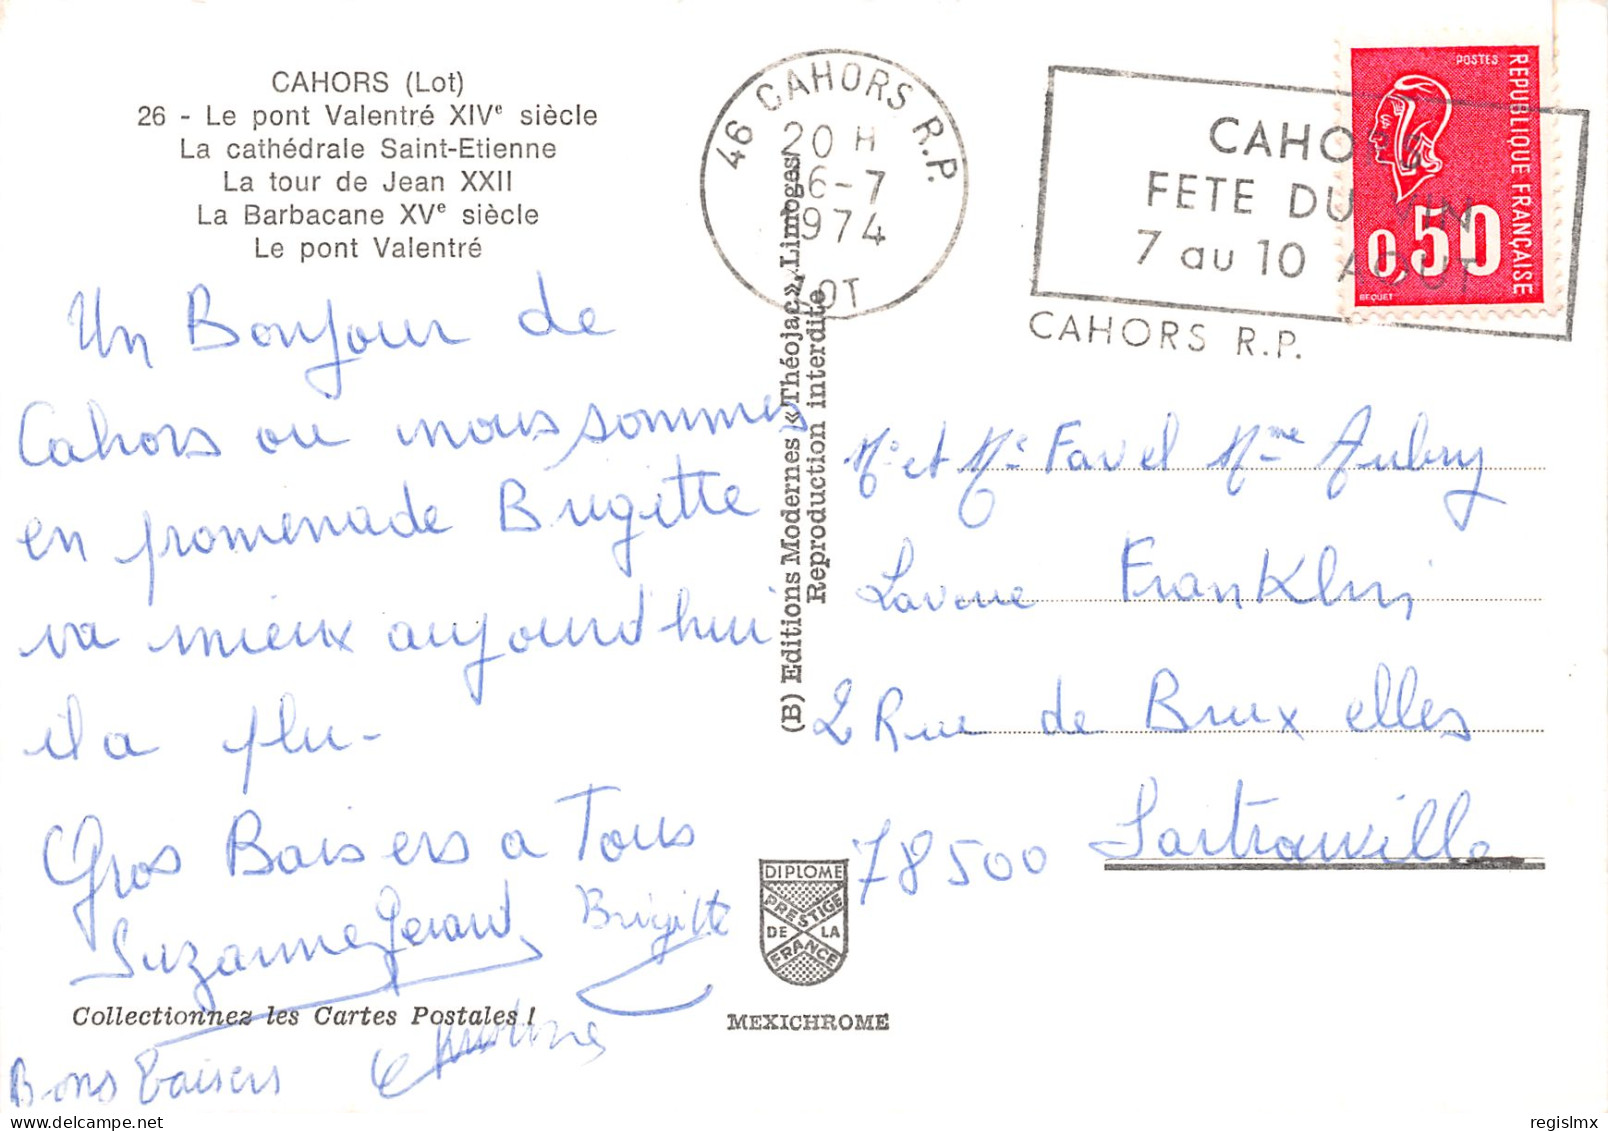 CAHORS (Lot)
26 - Le pont Valentré XIVe siècle
La cathédrale Saint-Etienne
La tour de Jean XXII
La Barbacane XVe siècle
Le pont Valentré
Un Bonjour de
Cahors ou nous sommes
en promenade Brigitte
va mieux aujourd'hui
il a plu -
Gros Baisers a Tous
Suzanne Gerard Brigitte
Collectionnez les Cartes Postales !
Bons baisers
(B) Editions Modernes «Théojac», Limoges
Reproduction interdite
DIPLOME
PRESTIGE
DE LA
FRANCE
MEXICHROME
46 CAHORS R.P.
20 H
6-7
1974
LOT
CAHORS
FETE DU VIN
7 au 10 AOUT
CAHORS R.P.
POSTES
REPUBLIQUE FRANÇAISE
0,50
BEQUET
Mr et Me Favel Mme Aubry
Lavoue Franklin
2 Rue de Bruxelles
78500 Sartrouville
regislmx